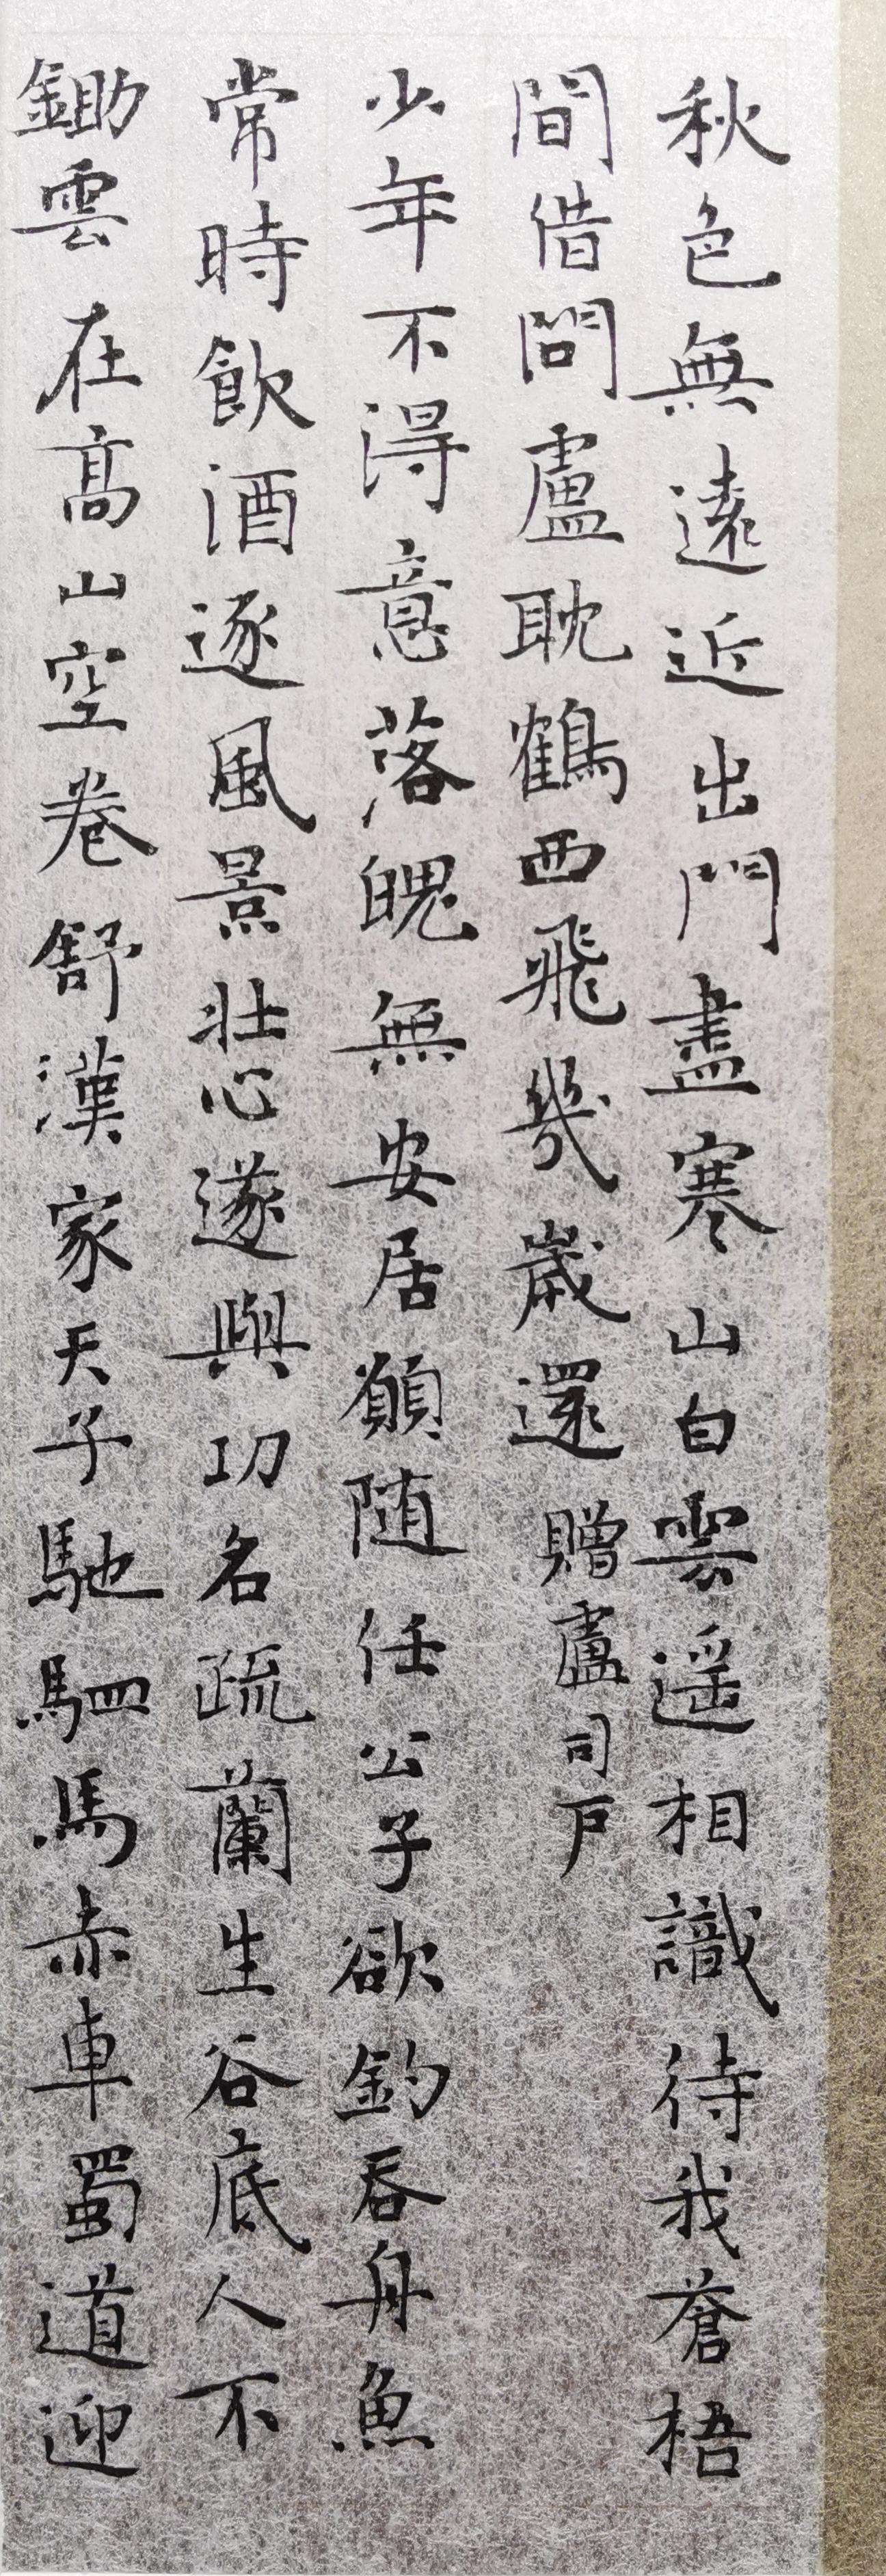 秋色無遠近出門盡寒山白雲遥相識待我蒼梧
間借問盧耽鶴西飛幾歲還贈盧司戶
少年不得意落魄無安居願随任公子欲釣吞舟魚
常時飲酒逐風景壯心遂與功名疏蘭生谷底人不
鋤雲在高山空卷舒漢家天子馳駟馬赤車蜀道迎